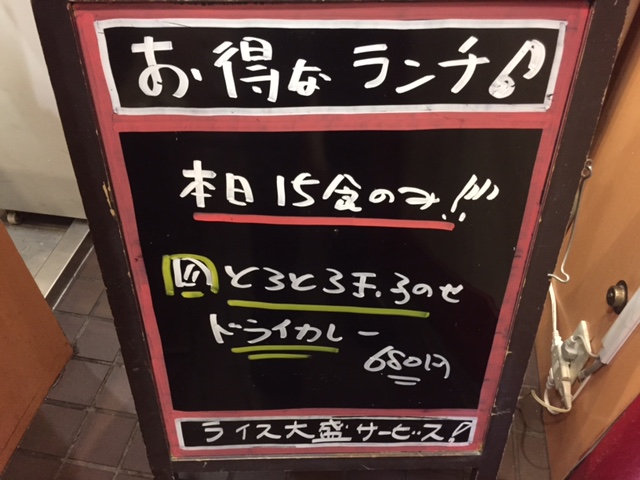 お得なランチ♪
本日15食のみ!!!
とろとろ玉子のせ
ドライカレー
680円
ライス大盛サービス!